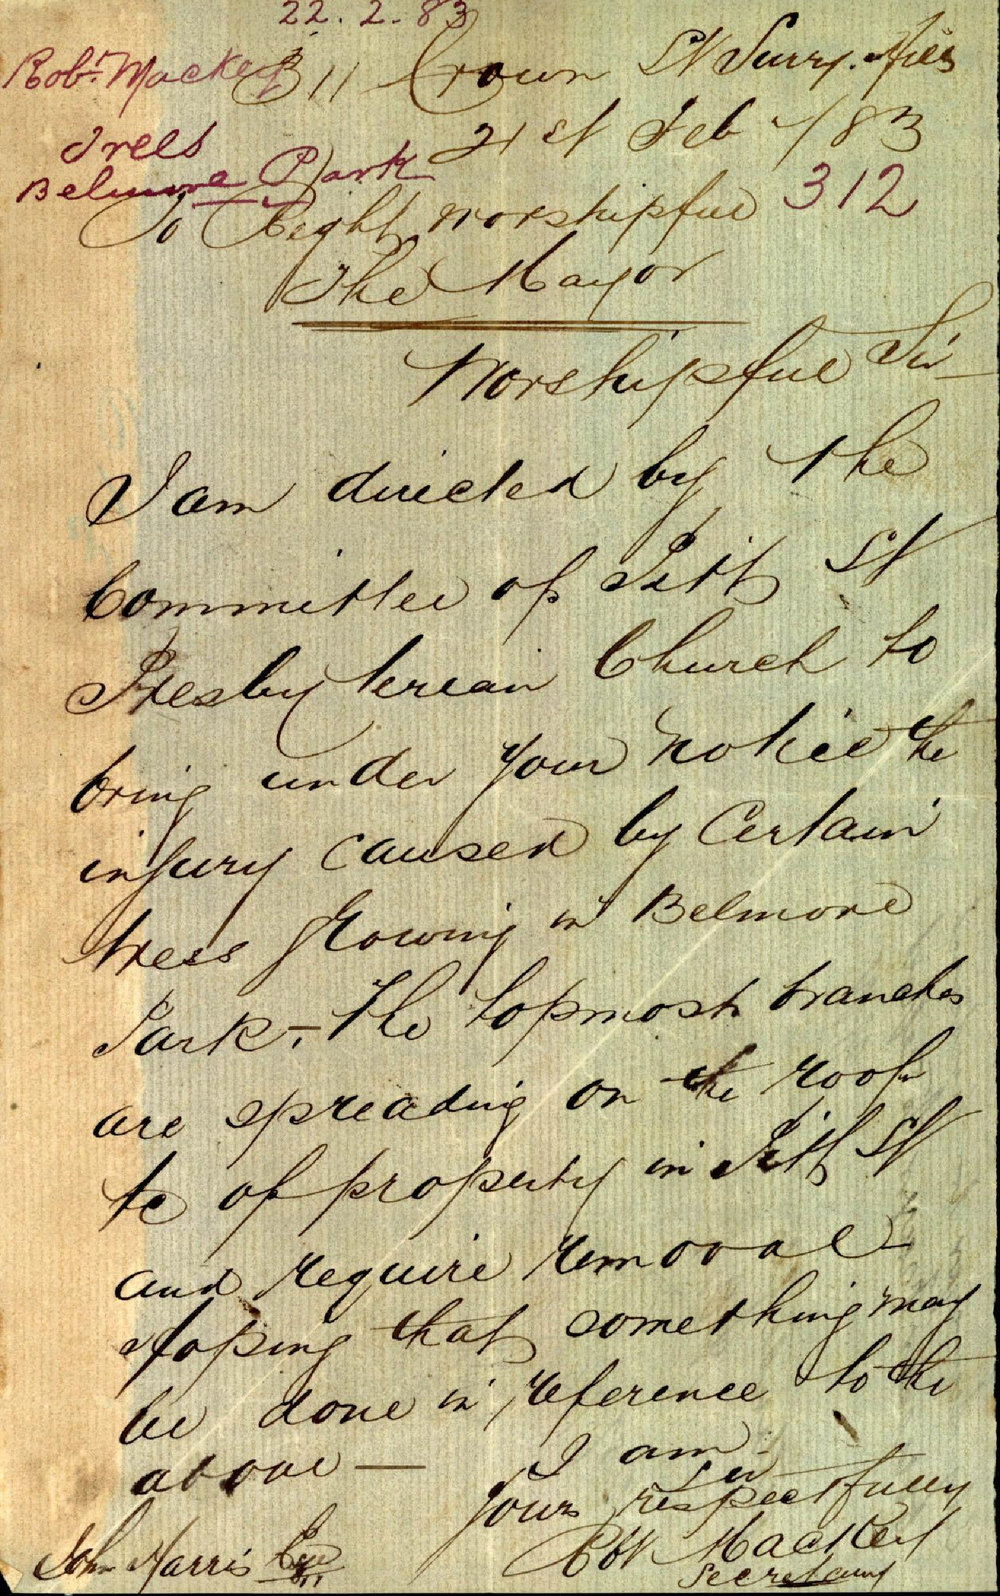 22.2.83
Robt. Mackey
311 Crown St Surry Hills
21st Feb /83
Trees
Belmore Park
312
To Right Worshipful
The Mayor
Worshipful Sir
I am directed by the
Committee of Pitt St
Presbyterian Church to
bring under your notice the
injury caused by Certain
trees growing in Belmore
Park,- The topmost branches
are spreading on the roof
&c of property in Pitt St
and require removal
Hoping that something may
be done in reference to the
above —
I am
Sir
Yours respectfully
Robt Mackey
Secretary
John Harris Esqr